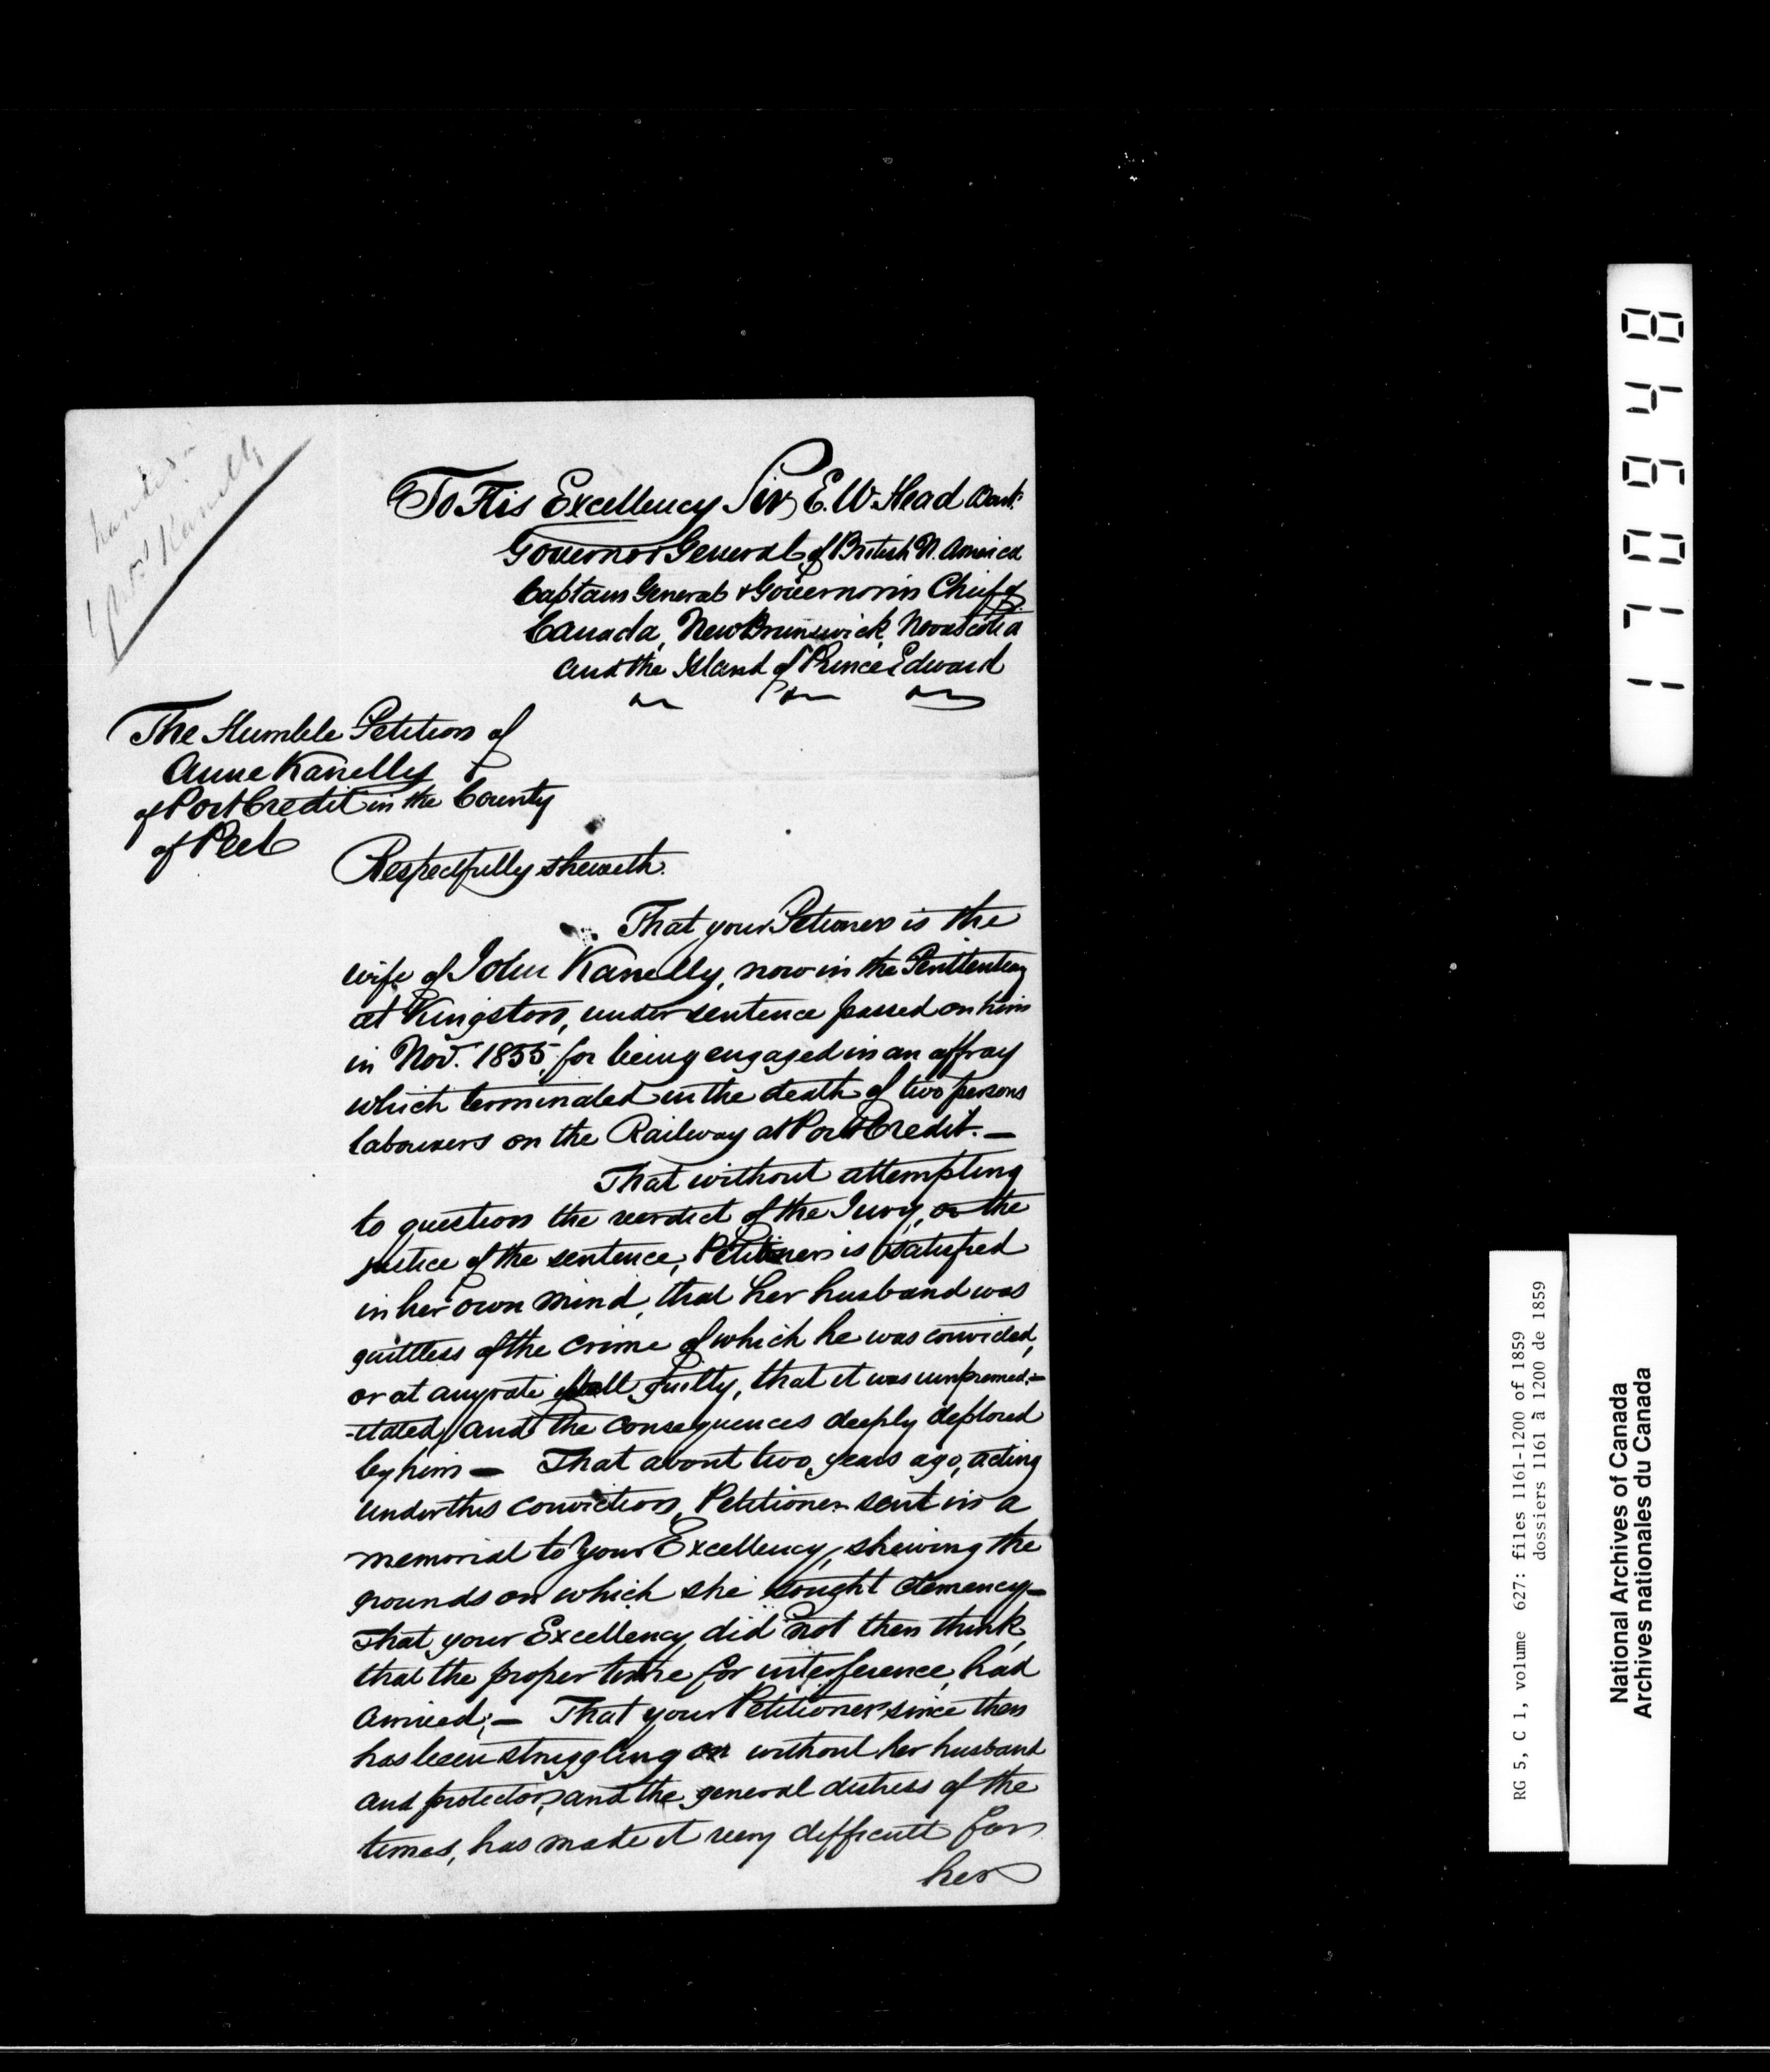 Mrs Kanelly
To His Excellency Sir E. W. Head Bart.
Governor General of British N. America
Captain General & Governor in Chief of
Canada, New Brunswick, Nova Scotia
and the Island of Prince Edward
The Humble Petition of
Anne Kanelly
of Port Credit in the County
of Peel
Respectfully sheweth.
That your Petioner is the
wife of John Kanelly, now in the Penittentiary
at Kingston, under sentence passed on him
in Nov. 1855, for being engaged in an affray
which terminated in the death of two persons
labourers on the Railway at Port Credit. —
That without attempting
to question the verdict of the Jury, or the
justice of the sentence, Petitioner is satisfied
in her own mind, that her husband was
guiltless of the crime of which he was convicted,
or at anyrate if at all guilty, that it was unpremed:-
-itated, and the consequences deeply deplored
by him — That about two years ago, acting
under this conviction, Petitioner sent in a
memorial to Your Excellency, shewing the
grounds on which she sought clemency —
That your Excellency did not then think,
that the proper time for interference, had
arrived; — That your Petitioner since then
has been struggling on without her husband
and protector, and the general distress of the
times, has made it very difficult for
her
171648
RG 5, C 1, volume 627: files 1161-1200 of 1859
dossiers 1161 à 1200 de 1859
National Archives of Canada
Archives nationales du Canada